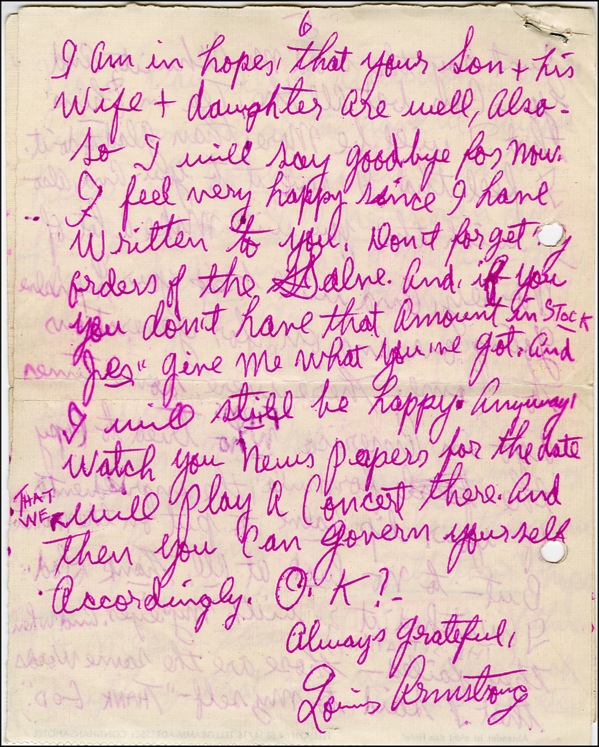 6
I am in hopes, that your Son + his
Wife + daughter are well, Also-
So I will say goodbye for now.
I feel very happy since I have
Written to you. Don't forget my
orders of the Salve. And, if you
you don't have that Amount in STOCK
Jes" give me what you've got. And
I will still be happy. Anyway,
Watch you News Papers for the date
THAT WE will Play A Concert there. And
then you Can govern yourself
Accordingly. O.K?-
Always grateful,
Louis Armstrong